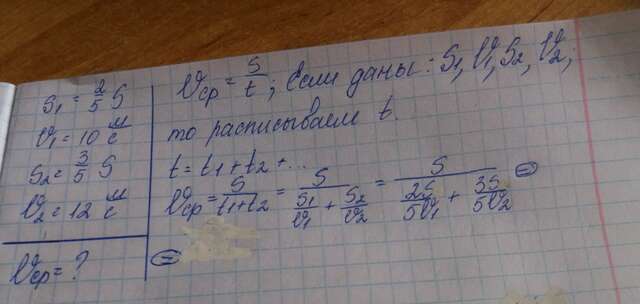 S₁ = 2/5 S
υ₁ = 10 м/с
S₂ = 3/5 S
υ₂ = 12 м/с
υср = ?
υср = S/t; Если даны: S₁, υ₁, S₂, υ₂;
то расписываем t.
t = t₁ + t₂ + ...
υср = S/(t₁+t₂) = S/(S₁/υ₁ + S₂/υ₂) = S/(2S/5υ₁ + 3S/5υ₂) =
=